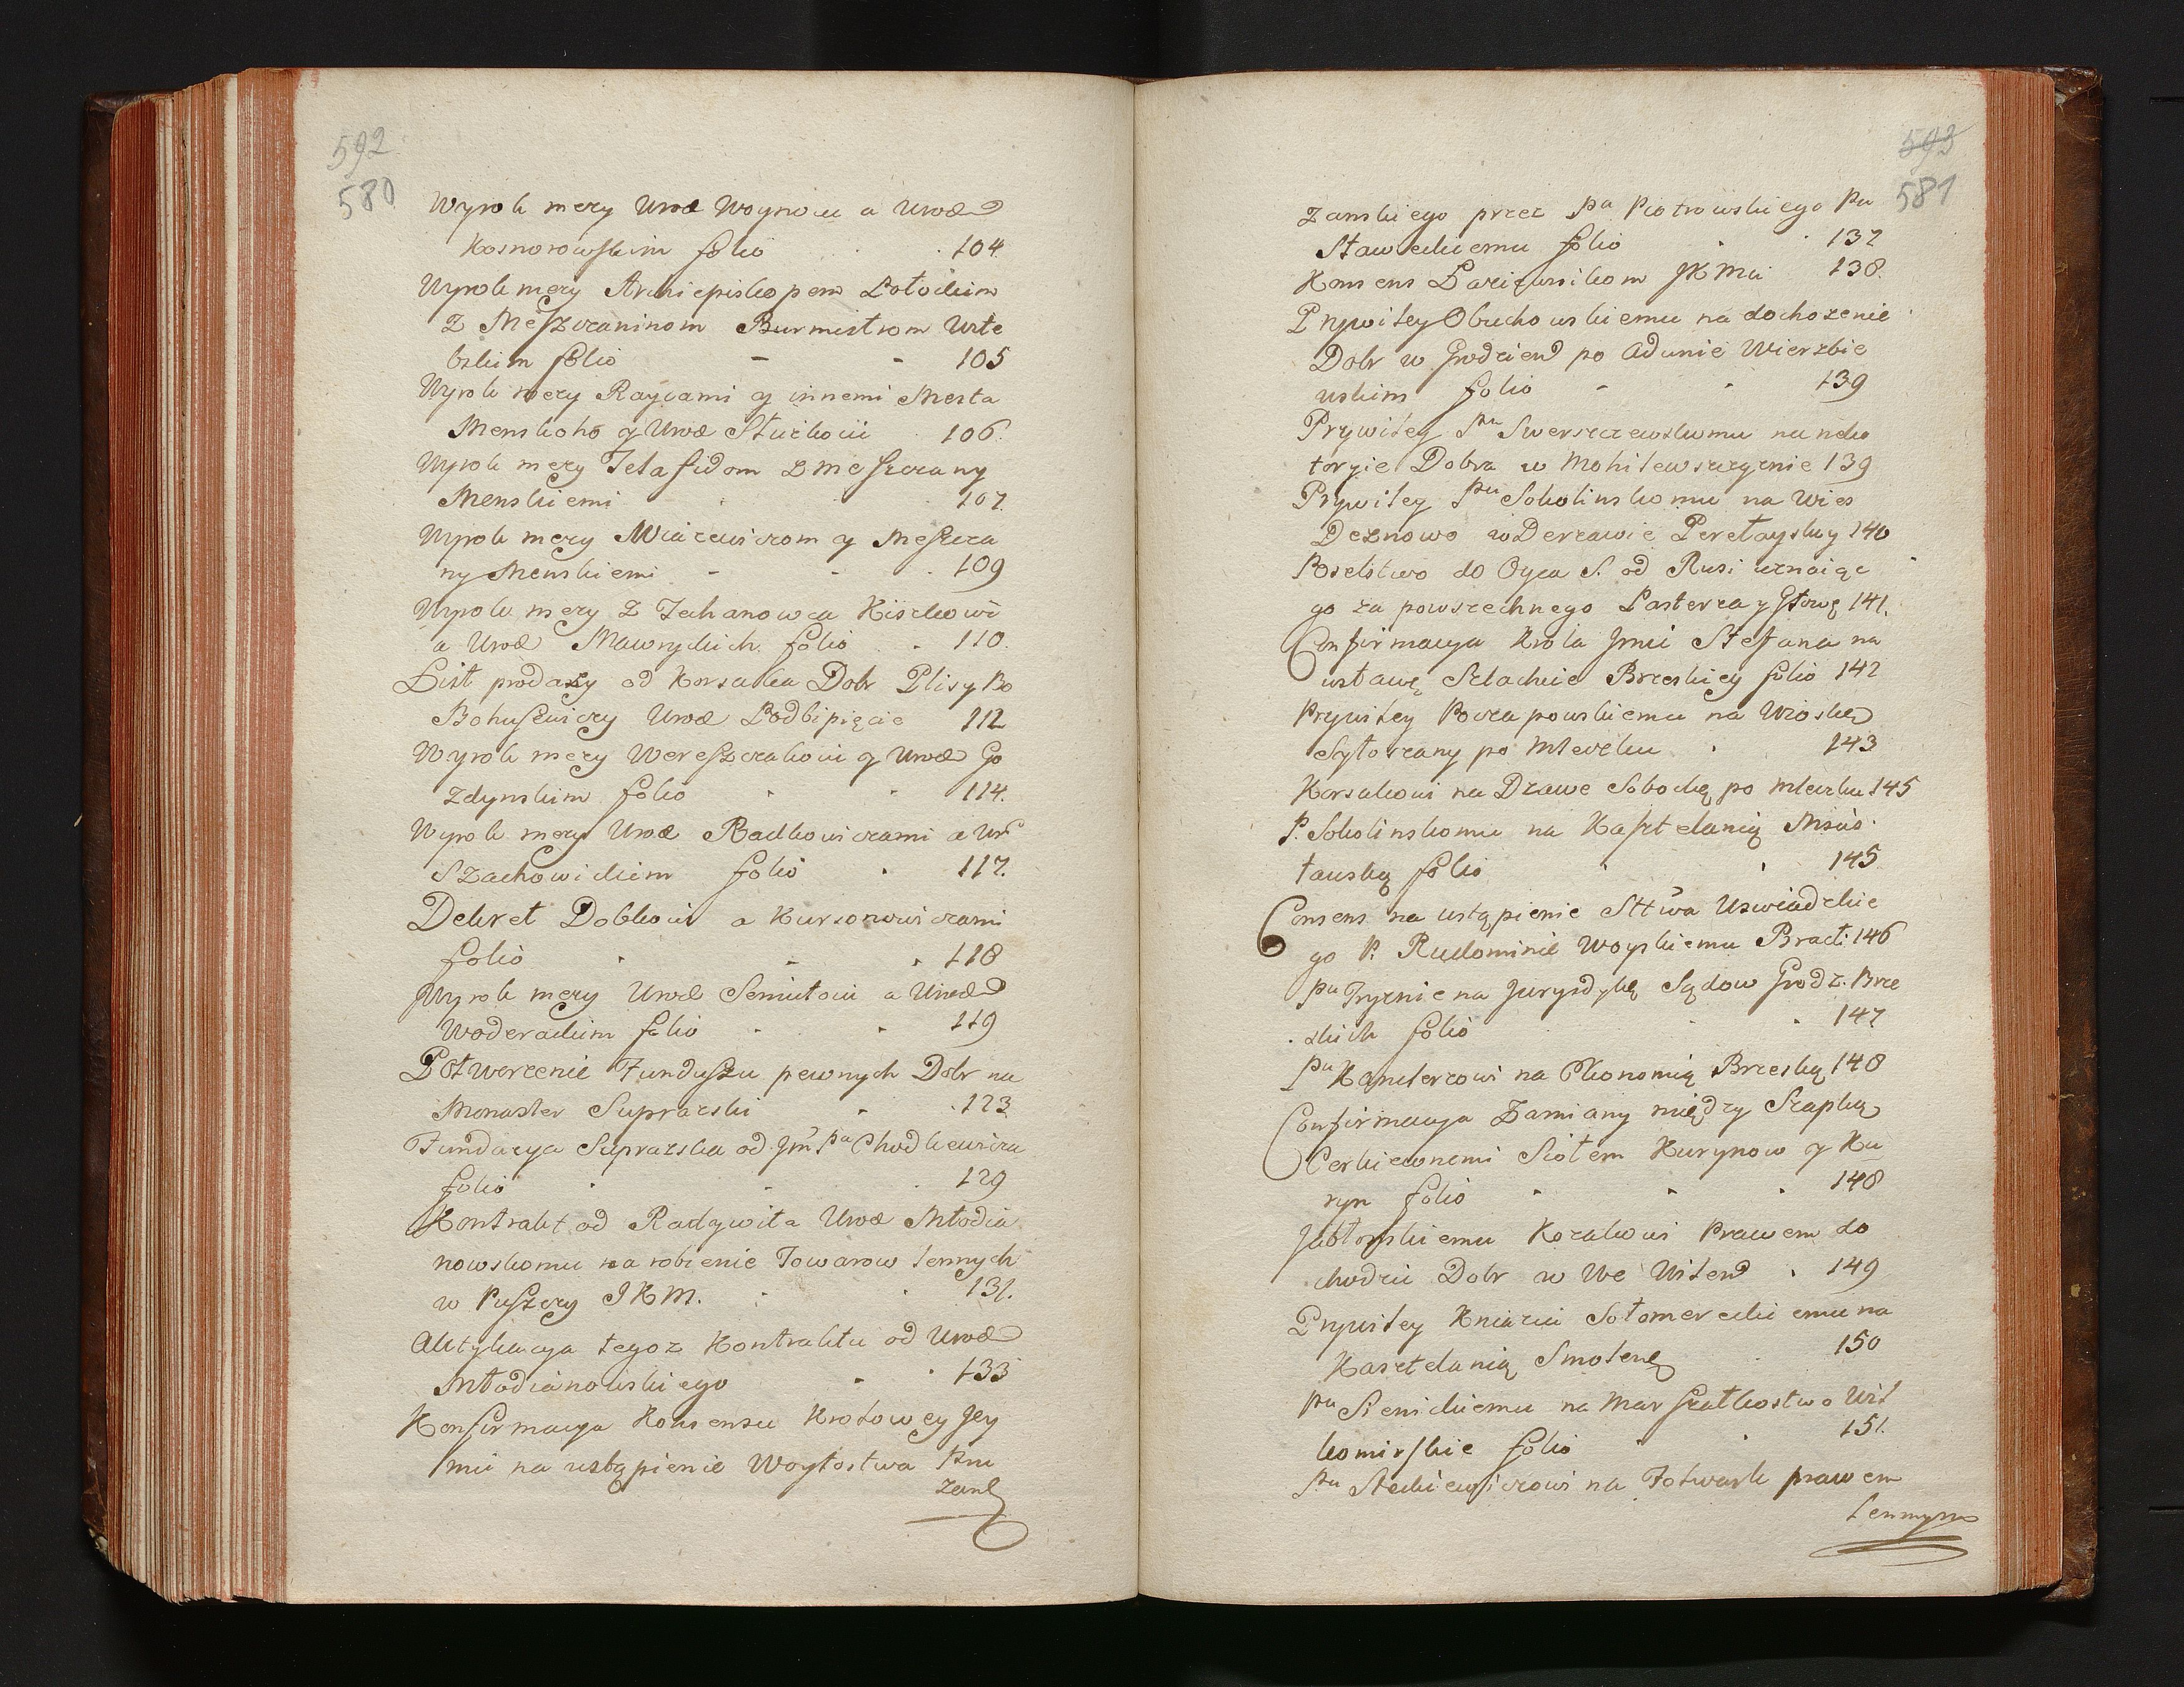 592
580
Wyrok mezy Urod Woynow a Urod
Kosnorowskim folio 104
Wyrok mezy Archiepiskopem Połockim
Z Meszczaninom Burmistrom Wite
bskim folio 105
Wyrok mezy Raycami y innemi Mesta
Menskoho y Urod Stuckoui 106.
Wyrok mezy Jelasidom z meszczany
Menskiemi 107.
Wyrok mezy Wiazewiczom y Meszcza
ny Menskiemi 109
Wyrok mezy Z Jechanowca Kiszkowi
a Urod Mawryckich folio 110.
List prodazy od Korsaka Dobr Plisy Bo
Bohuszewiczy Urod Podbipięcie 112
Wyrok mezy Wereszczakoui y Urod Go
zdynskim folio 114.
Wyrok mezy Urod Radkowiczami a Ur
Szachowickim folio 117.
Dekret Dobkoui a Kursowiczami
folio 118
Wyrok mezy Urod Semutoui a Urod
Woderackim folio 119
Potwerzenie Funduszu pewnych Dobr na
Monaster Suprazski 123
Fundacya Suprazska od Jm Pa Chodkewicza
folio 129
Kontrakt od Radziwiła Urod Młodza
nowskomu na robienie Towarow lennych
w Puszczy JKM. 131.
Aktykacya tegoz Kontraktu od Urod
Młodzianouskiego 133
Konfirmacya Konsensu Krolowey Jey
mci na ustąpienie Woytostwa Knu
zans
593
581
Zanskiego przez Pa Piotrowskiego Pu
Staweckiemu folio 137
Konsens JKMci 138.
Prywiley Obuchowskiemu na dochozenie
Dobr w Grodzien po Adamie Wierzbie
uskim folio 139
Prywiley Pu Swerszczewskomu na neko
toryie Dobra w Mohilewszczyznie 139
Prywiley Pu Sokolinskomu na Wies
Deznowo w Derzawie Perełayskiy 140
Poselstwo do Oyca S. od Rusi uznaiąc
go za powszechnego Pasterza y Głowę 141.
Confirmacya Krola Jmci Stefana na
ustawę Szlachcie Brzeskiey folio 142
Prywiley Poczapowskiemu na Wioskę
Sytoczany po Mleczku 143
Korsakowi na Drawe Sobockę po Mleczku 145
P. Sokolinskomu na Kasztelanią Mscis
ławską folio 145
Consens na ustąpienie Sttwa Uswiadzkie
go P. Rudominie Woyskiemu Bracł: 146
Pu Tryznie na Jurysdykę Sądow Grodz. Brze
skich folio 147
Pu Kanclerzowi na Ekonomią Brzeską 148
Confirmacya Zamiany między Szapką
Cerkiewnemi Siołem Kurynow y Ku
ryn folio 148
Jabłonskiemu Kozakowi Prawem do
chodzic Dobr w We Wilen 149
Prywiley Kniaziu Sołomereckiemu na
Kasztelanią Smolens 150
Pu Sienickiemu na Marszałkostwo Wił
komirskie folio 151.
Pu Steckiewiczowi na Folwark prawem
Lennym